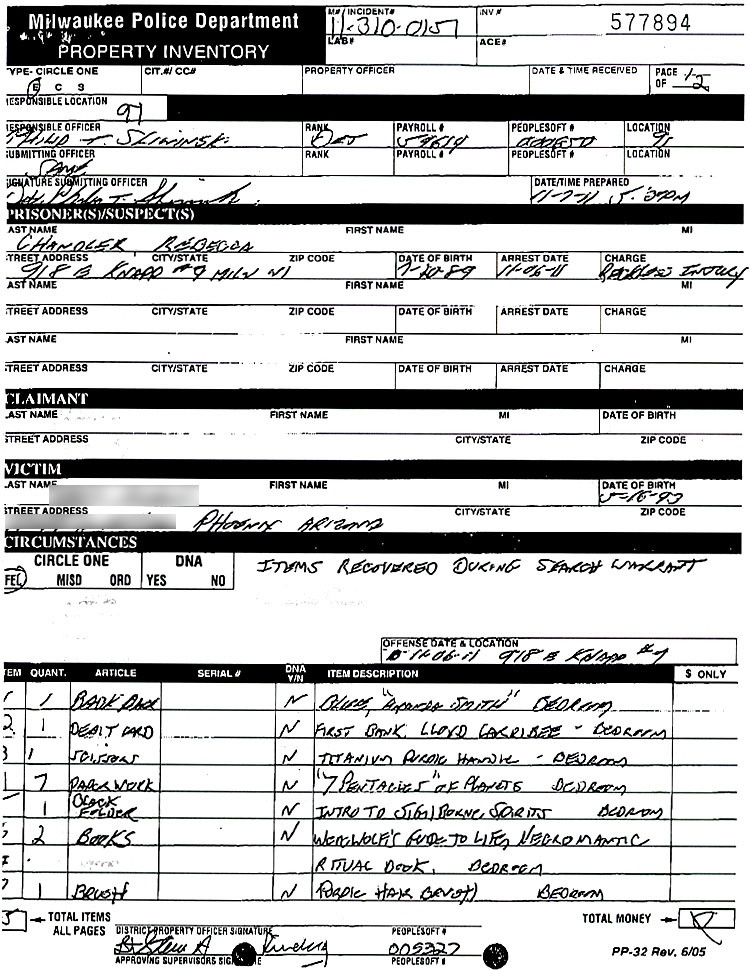 Milwaukee Police Department
PROPERTY INVENTORY
M#/ INCIDENT#
11-310-0157
LAB#
INV #
577894
ACE#
YPE- CIRCLE ONE
E C S
CIT.#/ CC#
PROPERTY OFFICER
DATE & TIME RECEIVED
PAGE 1
OF 2
ESPONSIBLE LOCATION
97
ESPONSIBLE OFFICER
Philip T. Sliwinski
RANK
Det
PAYROLL #
PEOPLESOFT #
LOCATION
UBMITTING OFFICER
SAME
RANK
PAYROLL #
PEOPLESOFT #
LOCATION
IGNATURE SUBMITTING OFFICER
DATE/TIME PREPARED
11-7-11
PRISONER(S)/SUSPECT(S)
AST NAME
FIRST NAME
MI
CHANDLER REBECCA
TREET ADDRESS
CITY/STATE
ZIP CODE
DATE OF BIRTH
ARREST DATE
CHARGE
918 E KNAPP #9 MILW WI
11-06-11
RECKLESS INJURY
AST NAME
FIRST NAME
MI
TREET ADDRESS
CITY/STATE
ZIP CODE
DATE OF BIRTH
ARREST DATE
CHARGE
AST NAME
FIRST NAME
MI
TREET ADDRESS
CITY/STATE
ZIP CODE
DATE OF BIRTH
ARREST DATE
CHARGE
CLAIMANT
AST NAME
FIRST NAME
MI
DATE OF BIRTH
TREET ADDRESS
CITY/STATE
ZIP CODE
VICTIM
AST NAME
FIRST NAME
MI
DATE OF BIRTH
TREET ADDRESS
CITY/STATE
ZIP CODE
PHOENIX ARIZONA
CIRCUMSTANCES
CIRCLE ONE
FEL MISD ORD
DNA
YES NO
ITEMS RECOVERED DURING SEARCH WARRATT
OFFENSE DATE & LOCATION
11-06-11 918 E KNAPP #9
TEM QUANT. ARTICLE SERIAL # DNA Y/N ITEM DESCRIPTION $ ONLY
1 BACK PACK N "AMANDA SMITH" BEDROOM
2 1 DEBIT CARD N FIRST BANK, LLOYD CARRIBEE - BEDROOM
3 1 SCISSORS N TITANIUM PURPLE HANDLE - BEDROOM
7 PAPER WORK N "7 PENTACLES" OF PLANETS BEDROOM
1 BLACK FOLDER N INTRO TO SIGILBORNE SPIRITS BEDROOM
2 BOOKS N WEREWOLF'S GUIDE TO LIFE, NECROMANTIC
RITUAL BOOK, BEDROOM
1 BRUSH N PURPLE HAIR BRUSH BEDROOM
TOTAL ITEMS
ALL PAGES
DISTRICT/PROPERTY OFFICER SIGNATURE
PEOPLESOFT #
005327
APPROVING SUPERVISORS
PEOPLESOFT #
TOTAL MONEY
PP-32 Rev. 6/05